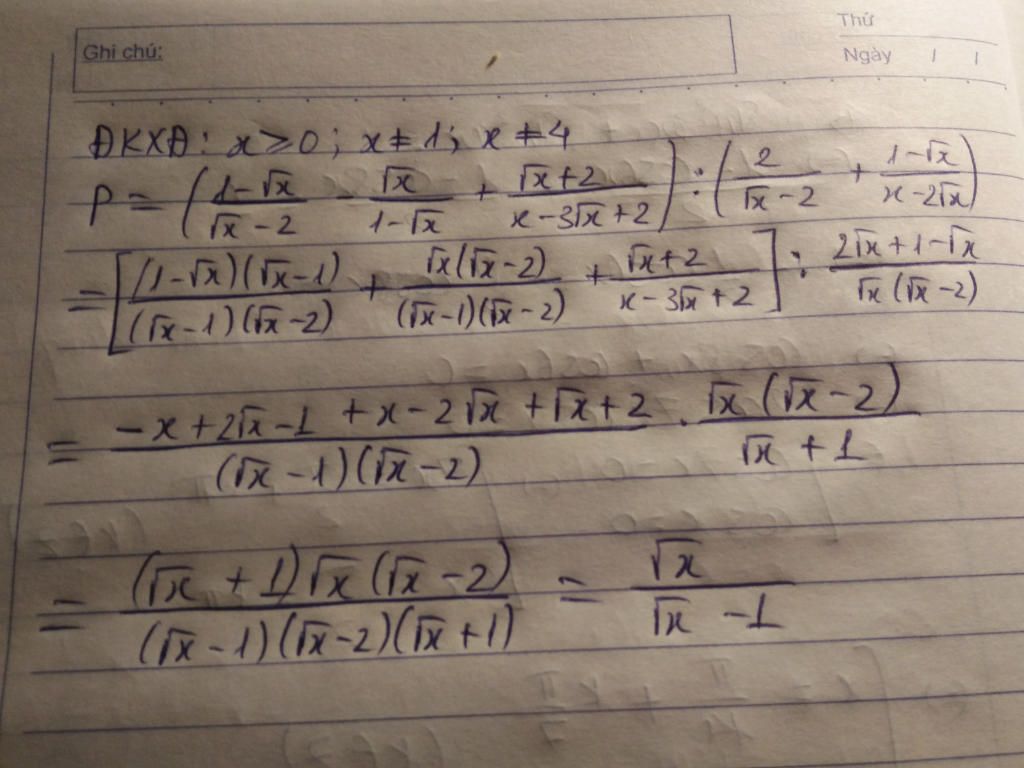 Thứ
Ghi chú:
Ngày / /
ĐKXĐ: x > 0; x ≠ 1; x ≠ 4
P = ((1-√x)/(√x-2) - √x/(1-√x) + (√x+2)/(x-3√x+2)) : (2/(√x-2) + (1-√x)/(x-2√x))
= [((1-√x)(√x-1))/((√x-1)(√x-2)) + (√x(√x-2))/((√x-1)(√x-2)) + (√x+2)/(x-3√x+2)] : (2√x+1-√x)/(√x(√x-2))
= (-x+2√x-1+x-2√x+√x+2)/((√x-1)(√x-2)) . (√x(√x-2))/(√x+1)
= ((√x+1)√x(√x-2))/((√x-1)(√x-2)(√x+1)) = √x/(√x-1)